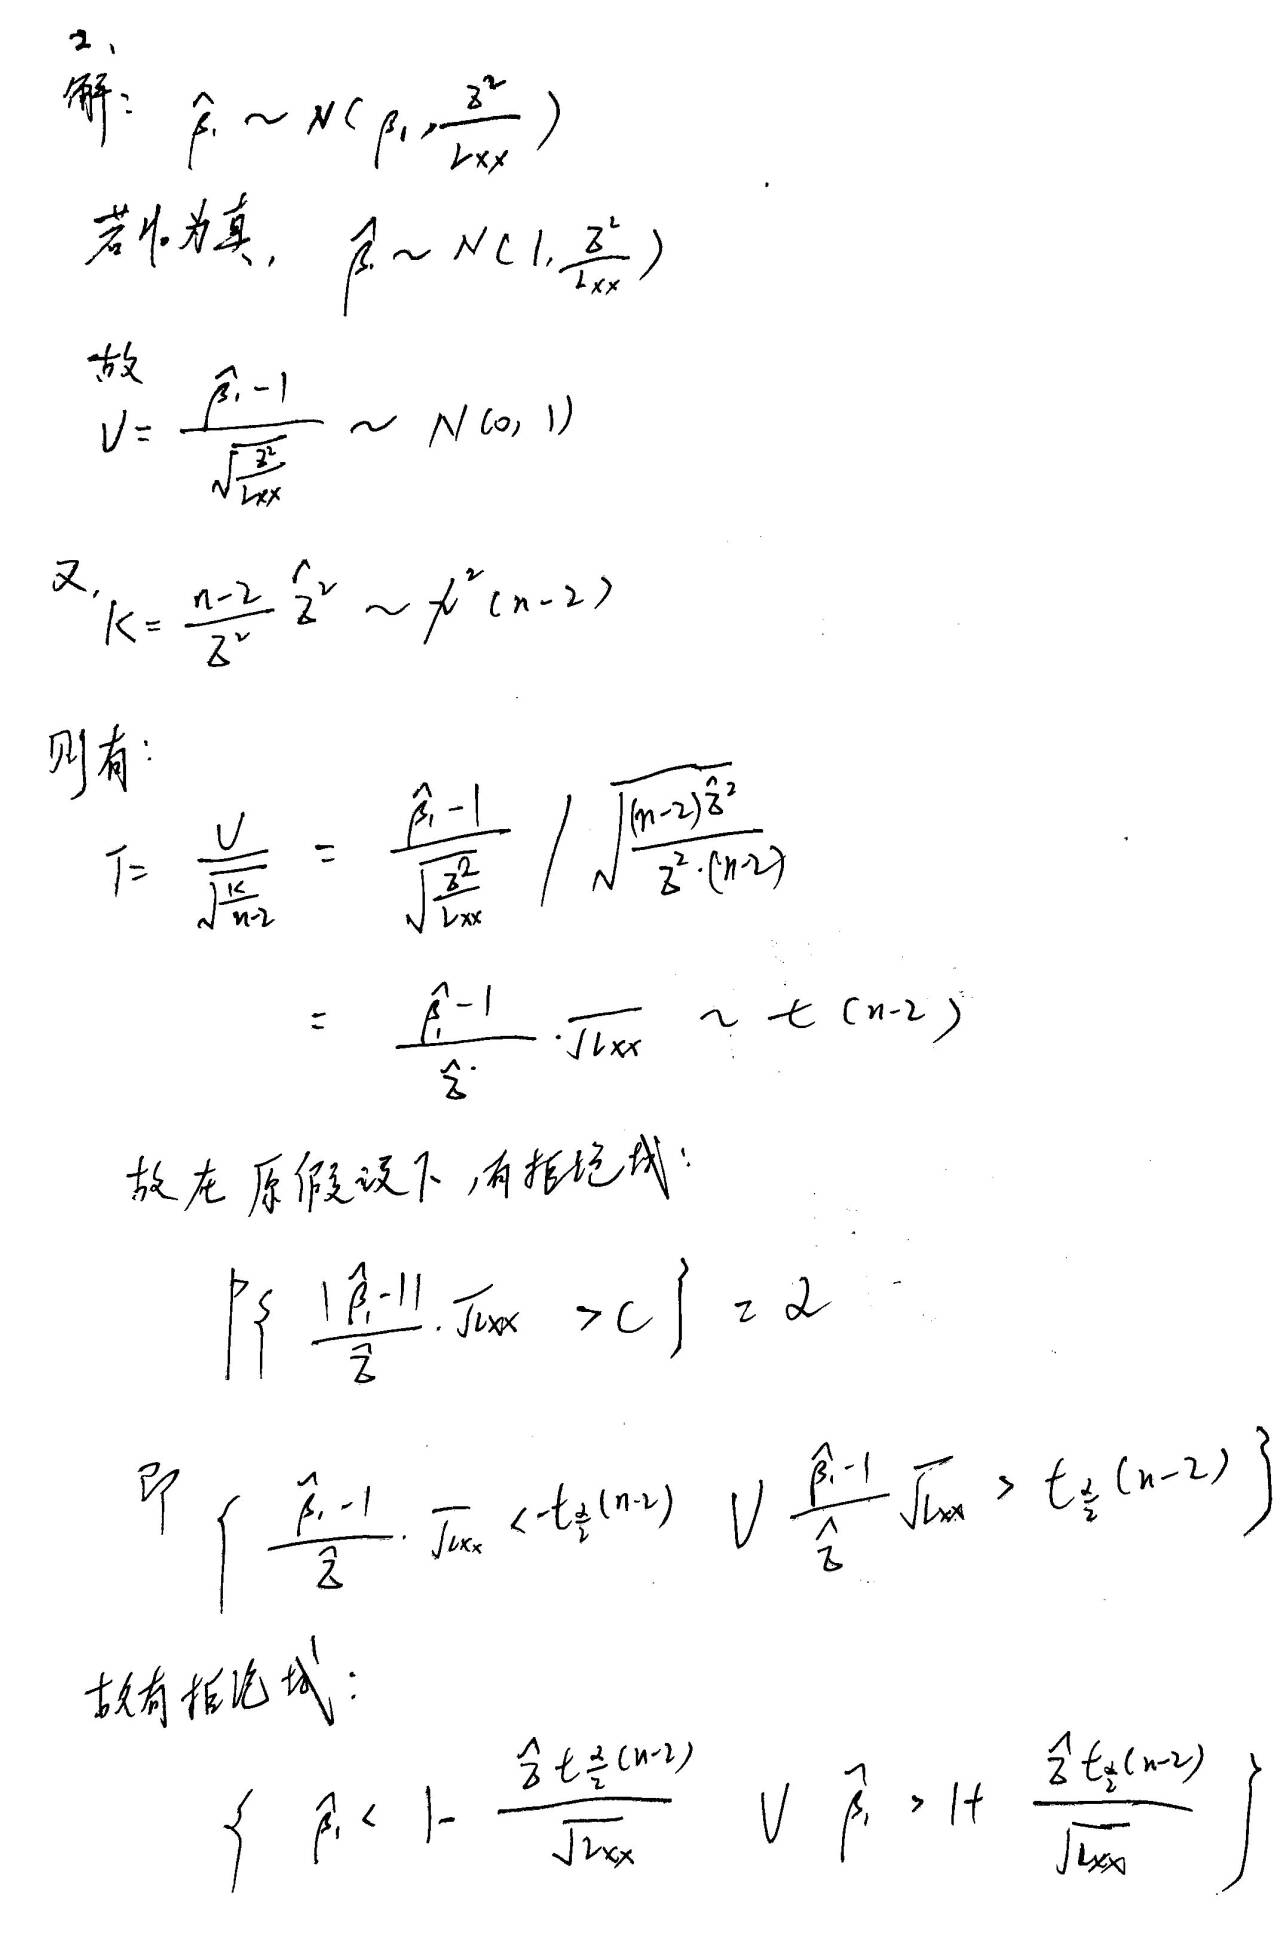 2、
解: β̂₁ ~ N(β₁, σ²/Lxx)
若H₀为真, β̂₁ ~ N(1, σ²/Lxx)
故
U = (β̂₁-1)/√(σ²/Lxx) ~ N(0, 1)
又, K = (n-2)/σ² σ̂² ~ χ²(n-2)
则有:
T = U/√(K/(n-2)) = (β̂₁-1)/√(σ²/Lxx) / √((n-2)σ̂²/(σ²·(n-2)))
= (β̂₁-1)/σ̂ · √Lxx ~ t(n-2)
故在原假设下,有拒绝域:
P{ |β̂₁-1|/σ̂ · √Lxx > C } = α
即 { (β̂₁-1)/σ̂ · √Lxx < -t_{α/2}(n-2) ∪ (β̂₁-1)/σ̂ √Lxx > t_{α/2}(n-2) }
故有拒绝域:
{ β̂₁ < 1 - σ̂ t_{α/2}(n-2)/√Lxx ∪ β̂₁ > 1 + σ̂ t_{α/2}(n-2)/√Lxx }